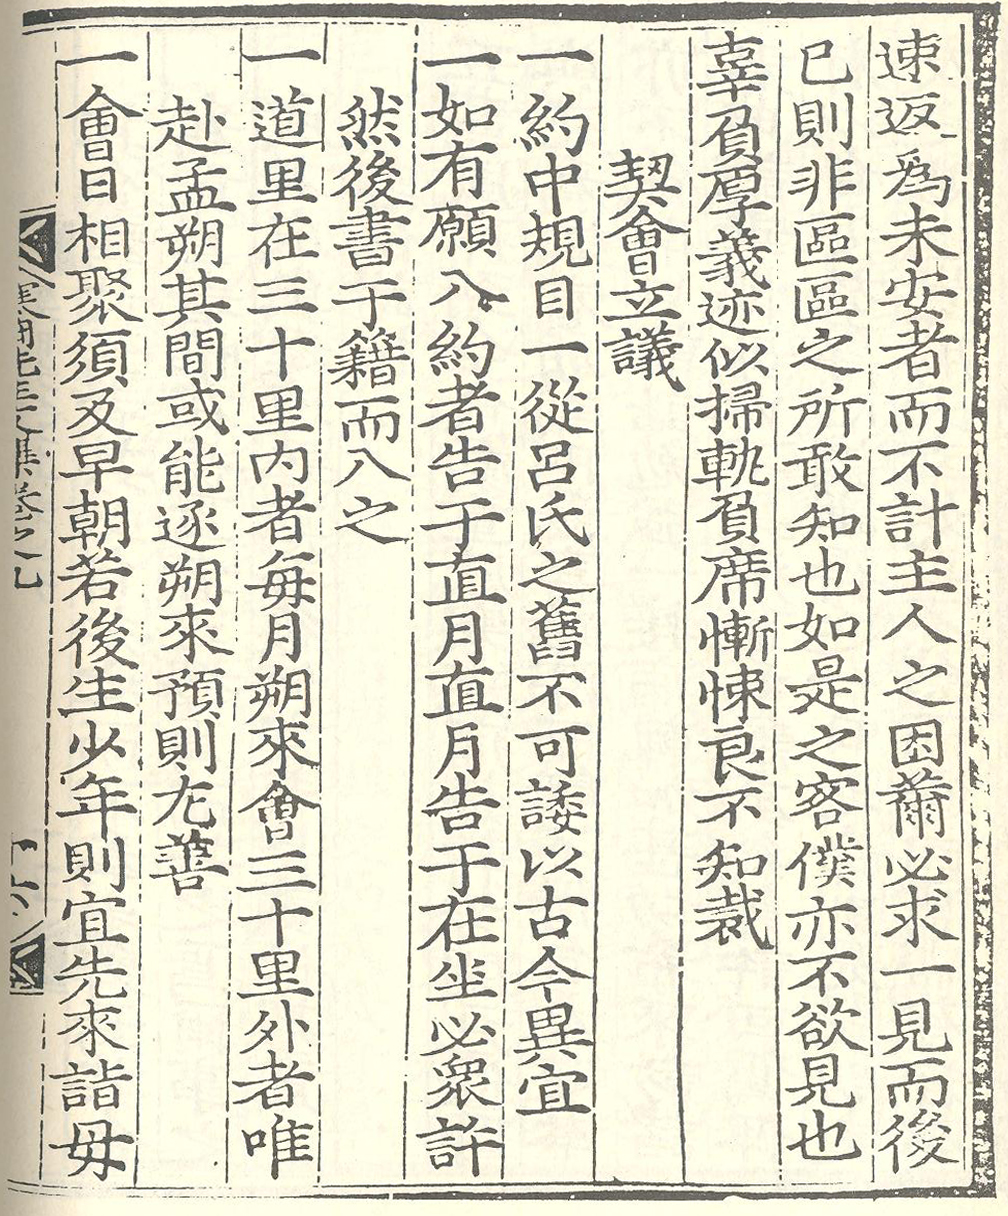 速返爲未安者而不計主人之困薾必求一見而後
已則非區區之所敢知也如是之客僕亦不欲見也
辜負厚義迹似掃軌負席慚悚良不知裁
契會立議
一約中規目一從呂氏之舊不可諉以古今異宜
一如有願入約者告于直月直月告于在坐必衆許
然後書于籍而入之
一道里在三十里內者每月朔來會三十里外者唯
赴孟朔其間或能逐朔來預則尤善
一會日相聚須及早朝若後生少年則宜先來詣毋
寒岡先生文集卷之九
十六